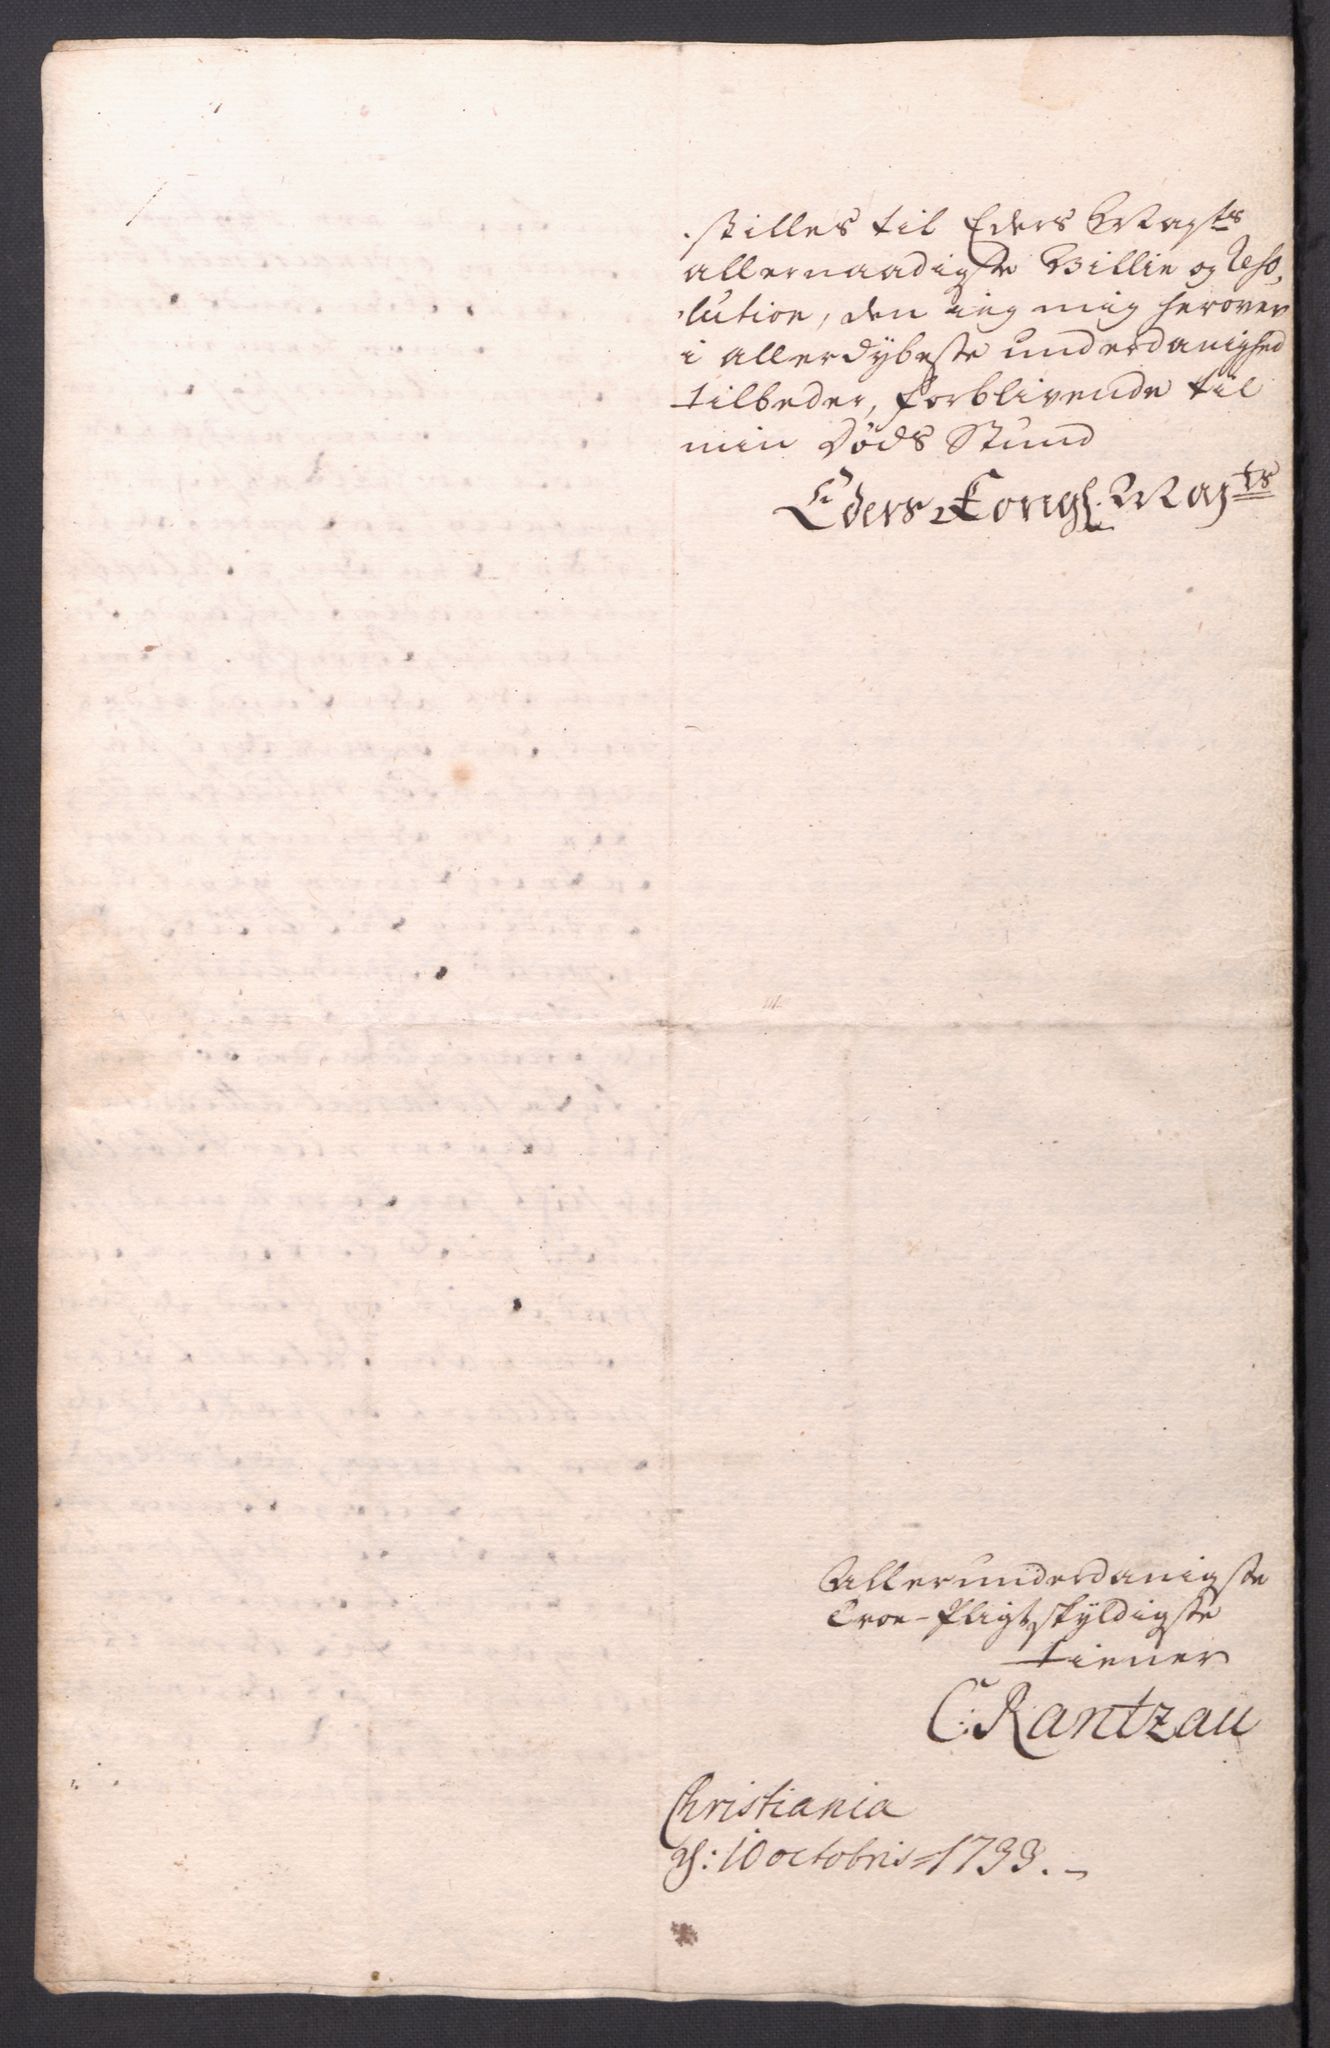 stilles til Eders Mayts
allernaadigste Villie og Reso,
lution, den ieg mig herover
i allerdybeste underdanighed
tilbeder, forblivende til
min Døds Stund
Eders Kongl. Majts
Allerunderdanigste
Troe-Pligtskyldigste
tiener
C: Rantzau
Christiania
d: 10 octobris 1733.